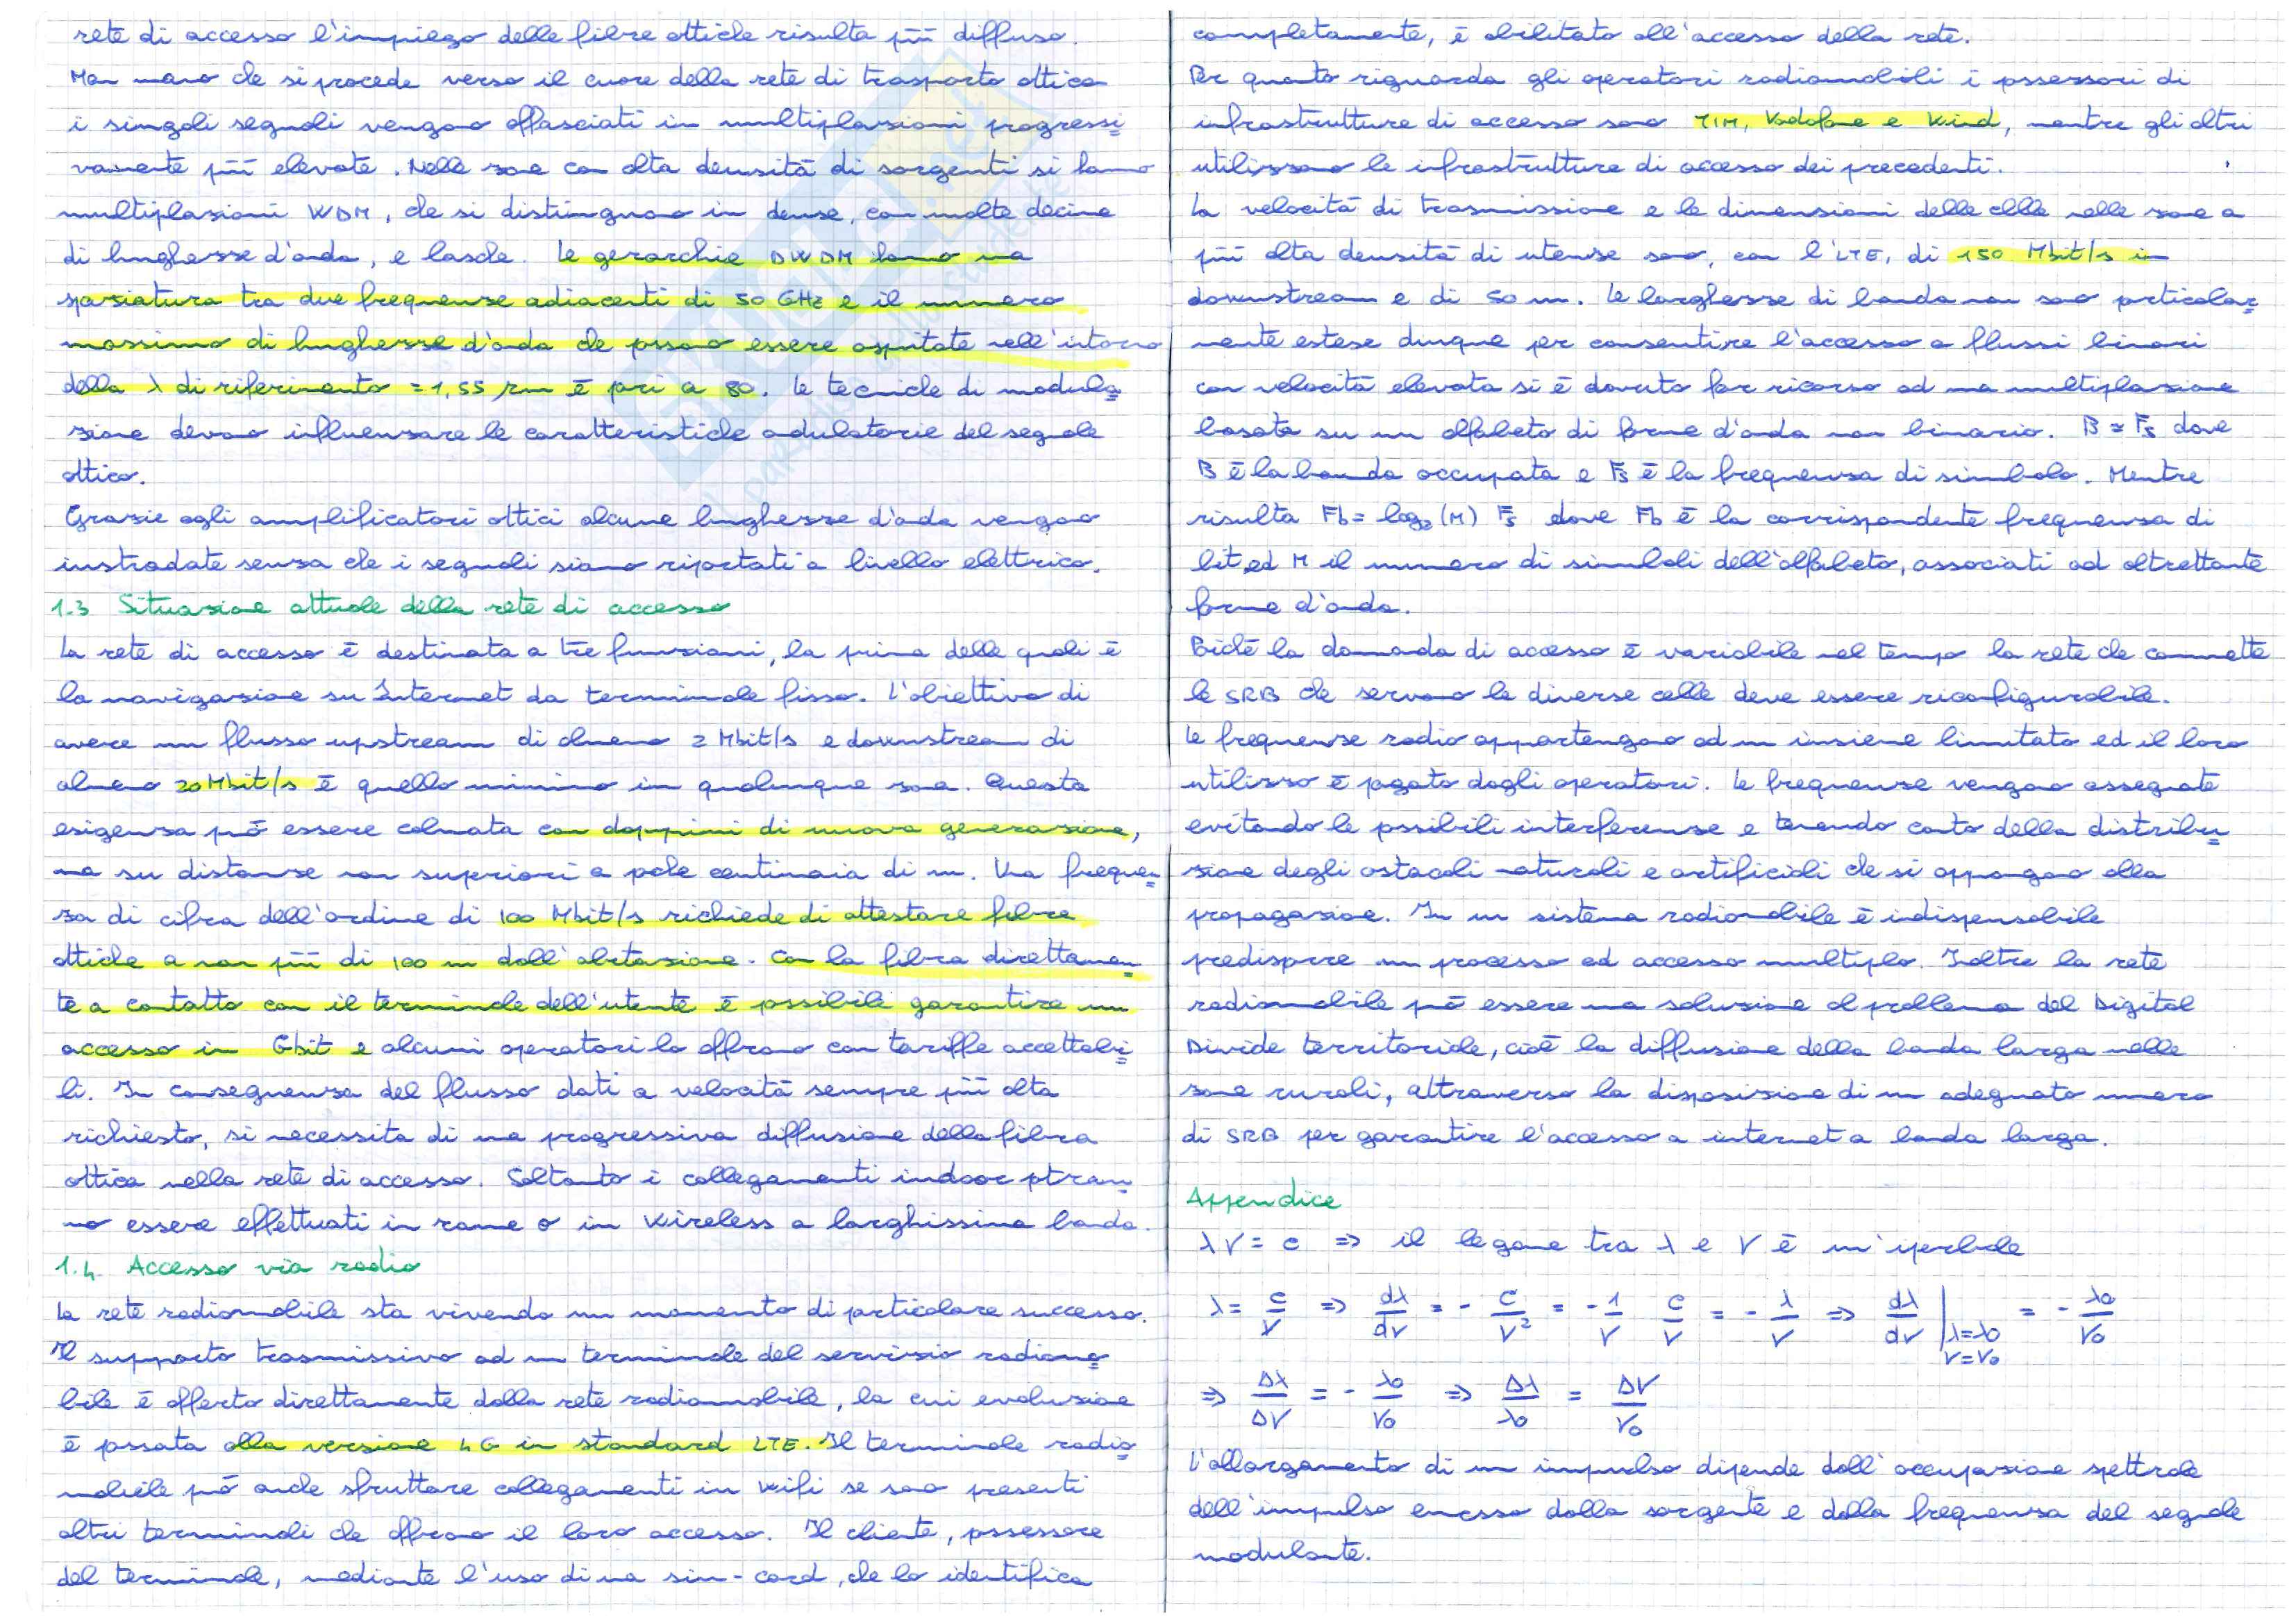 rete di accesso l'impiego delle fibre ottiche risulta più diffuso.
Man mano che si procede verso il cuore della rete di trasporto ottica
i singoli segnali vengono affasciati in multiplazioni progressi
vamente più elevate. Nelle zone con alta densità di sorgenti si fanno
multiplazioni WDM, che si distinguono in dense, con molte decine
di lunghezze d'onda, e lasche. Le gerarchie DWDM hanno una
spaziatura tra due frequenze adiacenti di 50 GHz e il numero
massimo di lunghezze d'onda che possono essere ospitate nell'intorno
della λ di riferimento = 1,55 μm è pari a 80. Le tecniche di modula
zione devono influenzare le caratteristiche ondulatorie del segnale
ottico.
Grazie agli amplificatori ottici alcune lunghezze d'onda vengono
instradate senza che i segnali siano riportati a livello elettrico.
1.3 Situazione attuale della rete di accesso
La rete di accesso è destinata a tre funzioni, la prima delle quali è
la navigazione su Internet da terminale fisso. L'obiettivo di
avere un flusso upstream di almeno 2 Mbit/s e downstream di
almeno 20 Mbit/s è quello minimo in qualunque zona. Questa
esigenza può essere colmata con doppini di nuova generazione,
ma su distanze non superiori a poche centinaia di m. Una frequen
za di cifra dell'ordine di 100 Mbit/s richiede di attestare fibre
ottiche a non più di 100 m dall'abitazione. Con la fibra direttamen
te a contatto con il terminale dell'utente è possibile garantire un
accesso in Gbit e alcuni operatori lo offrono con tariffe accettabi
li. In conseguenza del flusso dati a velocità sempre più alta
richiesto, si necessita di una progressiva diffusione della fibra
ottica nella rete di accesso. Soltanto i collegamenti indoor potran
no essere effettuati in rame o in wireless a larghissima banda.
1.4. Accesso via radio
La rete radiomobile sta vivendo un momento di particolare successo.
Il supporto trasmissivo ad un terminale del servizio radiomo
bile è offerto direttamente dalla rete radiomobile, la cui evoluzione
è passata alla versione 4G in standard LTE. Il terminale radio
mobile può anche sfruttare collegamenti in wifi se sono presenti
altri terminali che offrono il loro accesso. Il cliente, possessore
del terminale, mediante l'uso di una sim-card, che lo identifica
completamente, è abilitato all'accesso della rete.
Per quanto riguarda gli operatori radiomobili i possessori di
infrastrutture di accesso sono TIM, Vodafone e Wind, mentre gli altri
utilizzano le infrastrutture di accesso dei precedenti.
La velocità di trasmissione e le dimensioni delle celle nelle zone a
più alta densità di utenze sono, con l'LTE, di 150 Mbit/s in
downstream e di 50 m. Le larghezze di banda non sono particolar
mente estese dunque per consentire l'accesso a flussi binari
con velocità elevata si è dovuto far ricorso ad una multiplazione
basata su un alfabeto di forme d'onda non binario. B ≅ Fs dove
B è la banda occupata e Fs è la frequenza di simbolo. Mentre
risulta Fb = log₂(M) Fs dove Fb è la corrispondente frequenza di
bit, ed M il numero di simboli dell'alfabeto, associati ad altrettante
forme d'onda.
Poiché la domanda di accesso è variabile nel tempo la rete che connette
le SRB che servono le diverse celle deve essere riconfigurabile.
Le frequenze radio appartengono ad un insieme limitato ed il loro
utilizzo è pagato dagli operatori. Le frequenze vengono assegnate
evitando le possibili interferenze e tenendo conto della distribu
zione degli ostacoli naturali e artificiali che si oppongono alla
propagazione. In un sistema radiomobile è indispensabile
predisporre un processo ad accesso multiplo. Inoltre la rete
radiomobile può essere una soluzione al problema del Digital
Divide territoriale, cioè la diffusione della banda larga nelle
zone rurali, attraverso la disposizione di un adeguato numero
di SRB per garantire l'accesso a internet a banda larga.
Appendice
λν = c ⇒ il legame tra λ e ν è un'iperbole
λ = c/ν ⇒ dλ/dν = - c/ν² = - 1/ν c/ν = - λ/ν ⇒ dλ/dν |λ=λ0 ν=ν0 = - λ0/ν0
⇒ Δλ/Δν = - λ0/ν0 ⇒ Δλ/λ0 = Δν/ν0
L'allargamento di un impulso dipende dall'occupazione spettrale
dell'impulso emesso dalla sorgente e dalla frequenza del segnale
modulante.